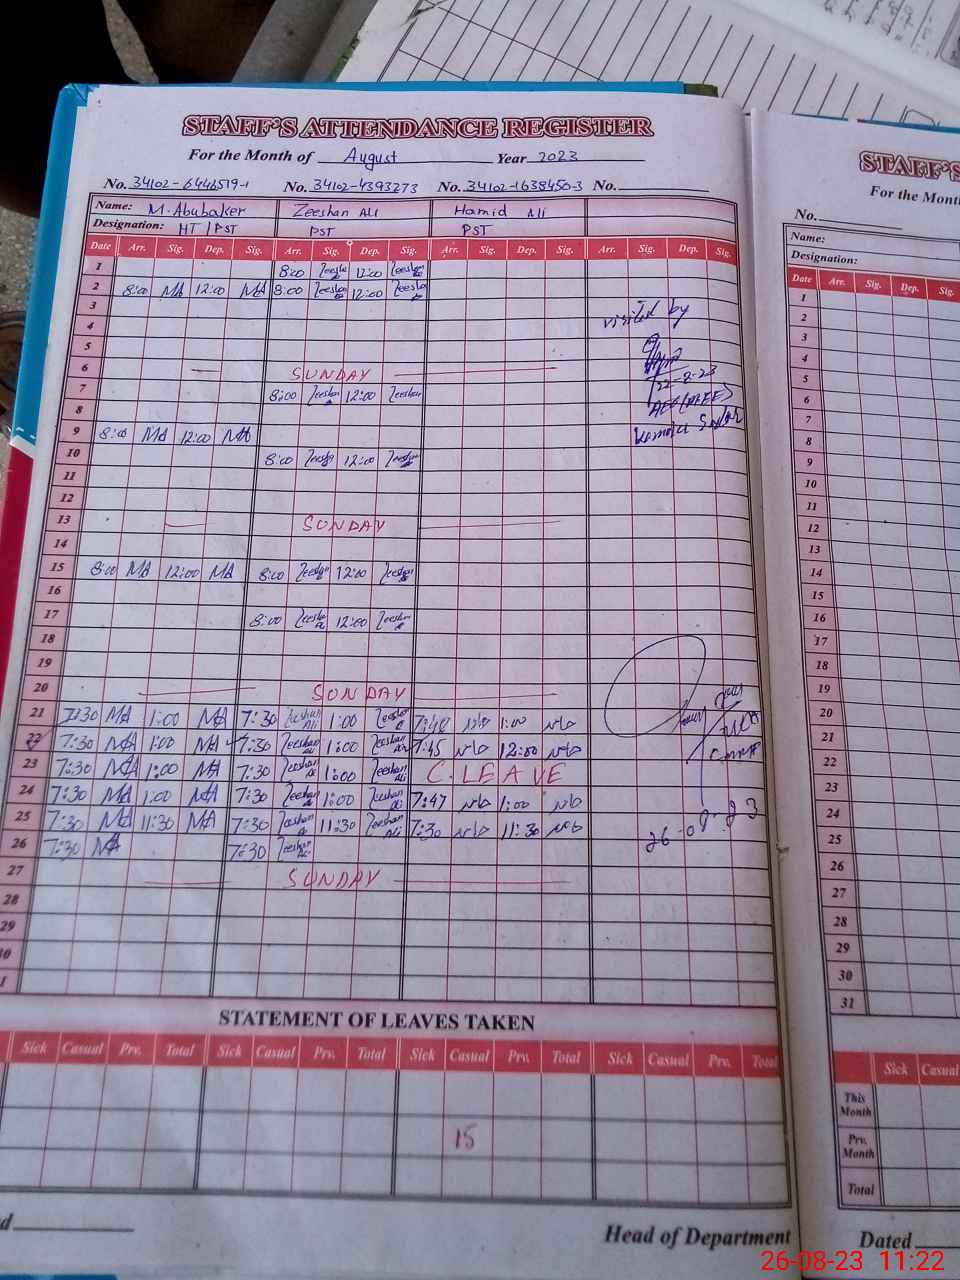 STAFF'S ATTENDANCE REGISTER
For the Month of August Year 2023
No. 34102-6446519-1 No. 34102-4393273 No. 34102-1638450-3 No.
Name: M. Abubaker Zeeshan Ali Hamid Ali
Designation: HT/PST PST PST
Date Arr. Sig. Dep. Sig. Arr. Sig. Dep. Sig. Arr. Sig. Dep. Sig. Arr. Sig. Dep. Sig.
1 8:00 Zeeshan 12:00 Zeeshan
2 8:00 MA 12:00 MA 8:00 Zeeshan 12:00 Zeeshan
3 visited by
4
5
6 SUNDAY 22-8-23
7 8:00 Zeeshan 12:00 Zeeshan
8
9 8:00 MA 12:00 MA
10 8:00 Zeeshan 12:00 Zeeshan
11
12
13 SUNDAY
14
15 8:00 MA 12:00 MA 8:00 Zeeshan 12:00 Zeeshan
16
17 8:00 Zeeshan 12:00 Zeeshan
18
19
20 SUNDAY
21 7:30 MA 1:00 MA 7:30 Zeeshan Ali 1:00 Zeeshan 7:48 1:00
22 7:30 MA 1:00 MA 7:30 Zeeshan Ali 1:00 Zeeshan Ali 7:45 12:00
23 7:30 MA 1:00 MA 7:30 Zeeshan Ali 1:00 Zeeshan Ali C.LEAVE
24 7:30 MA 1:00 MA 7:30 Zeeshan Ali 1:00 Zeeshan Ali 7:47 1:00
25 7:30 MA 11:30 MA 7:30 Zeeshan Ali 11:30 Zeeshan Ali 7:30 11:30 26-08-23
26 7:30 MA 7:30 Zeeshan Ali
27 SUNDAY
28
29
30
1
STATEMENT OF LEAVES TAKEN
Sick Casual Prv. Total Sick Casual Prv. Total Sick Casual Prv. Total Sick Casual Prv. Total
15
d
Head of Department
STAFF'S
For the Month
No.
Name:
Designation:
Date Arr. Sig. Dep. Sig.
1
2
3
4
5
6
7
8
9
10
11
12
13
14
15
16
17
18
19
20
21
22
23
24
25
26
27
28
29
30
31
Sick Casual
This Month
Prv. Month
Total
Dated
26-08-23 11:22